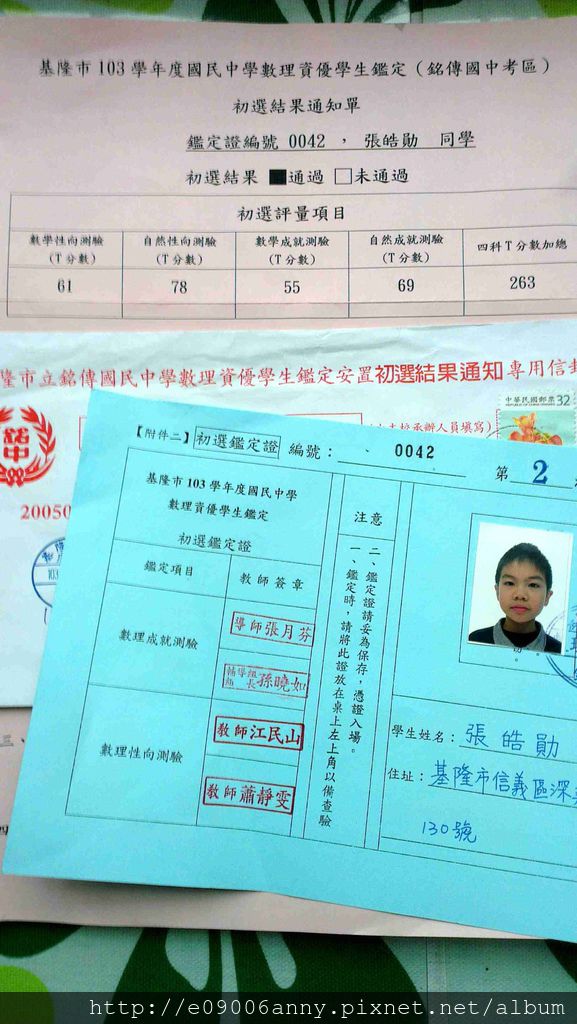 基隆市 103 學年度國民中學數理資優學生鑑定（銘傳國中考區）
初選結果通知單
鑑定證編號 0042 ， 張皓勛 同學
初選結果 ■通過 □未通過
初選評量項目
數學性向測驗 自然性向測驗 數學成就測驗 自然成就測驗 四科T分數加總
（T分數） （T分數） （T分數） （T分數）
61 78 55 69 263
隆市立銘傳國民中學數理資優學生鑑定安置初選結果通知專用信封
中華民國郵票 32
承辦人員填寫）
銘中
20050
【附件二】初選鑑定證 編號： 、 0042
第 2
基隆市 103 學年度國民中學
數理資優學生鑑定
初選鑑定證
鑑定項目 教師簽章
數理成就測驗
導師張月芬
輔導組組長孫曉如
數理性向測驗
教師江民山
教師蕭靜雯
注意
一、鑑定時，請將此證放在桌上左上角以備查驗
二、鑑定證請妥為保存，憑證入場。
學生姓名：張皓勛
住址：基隆市信義區深
130號
http://e09006anny.pixnet.net/album